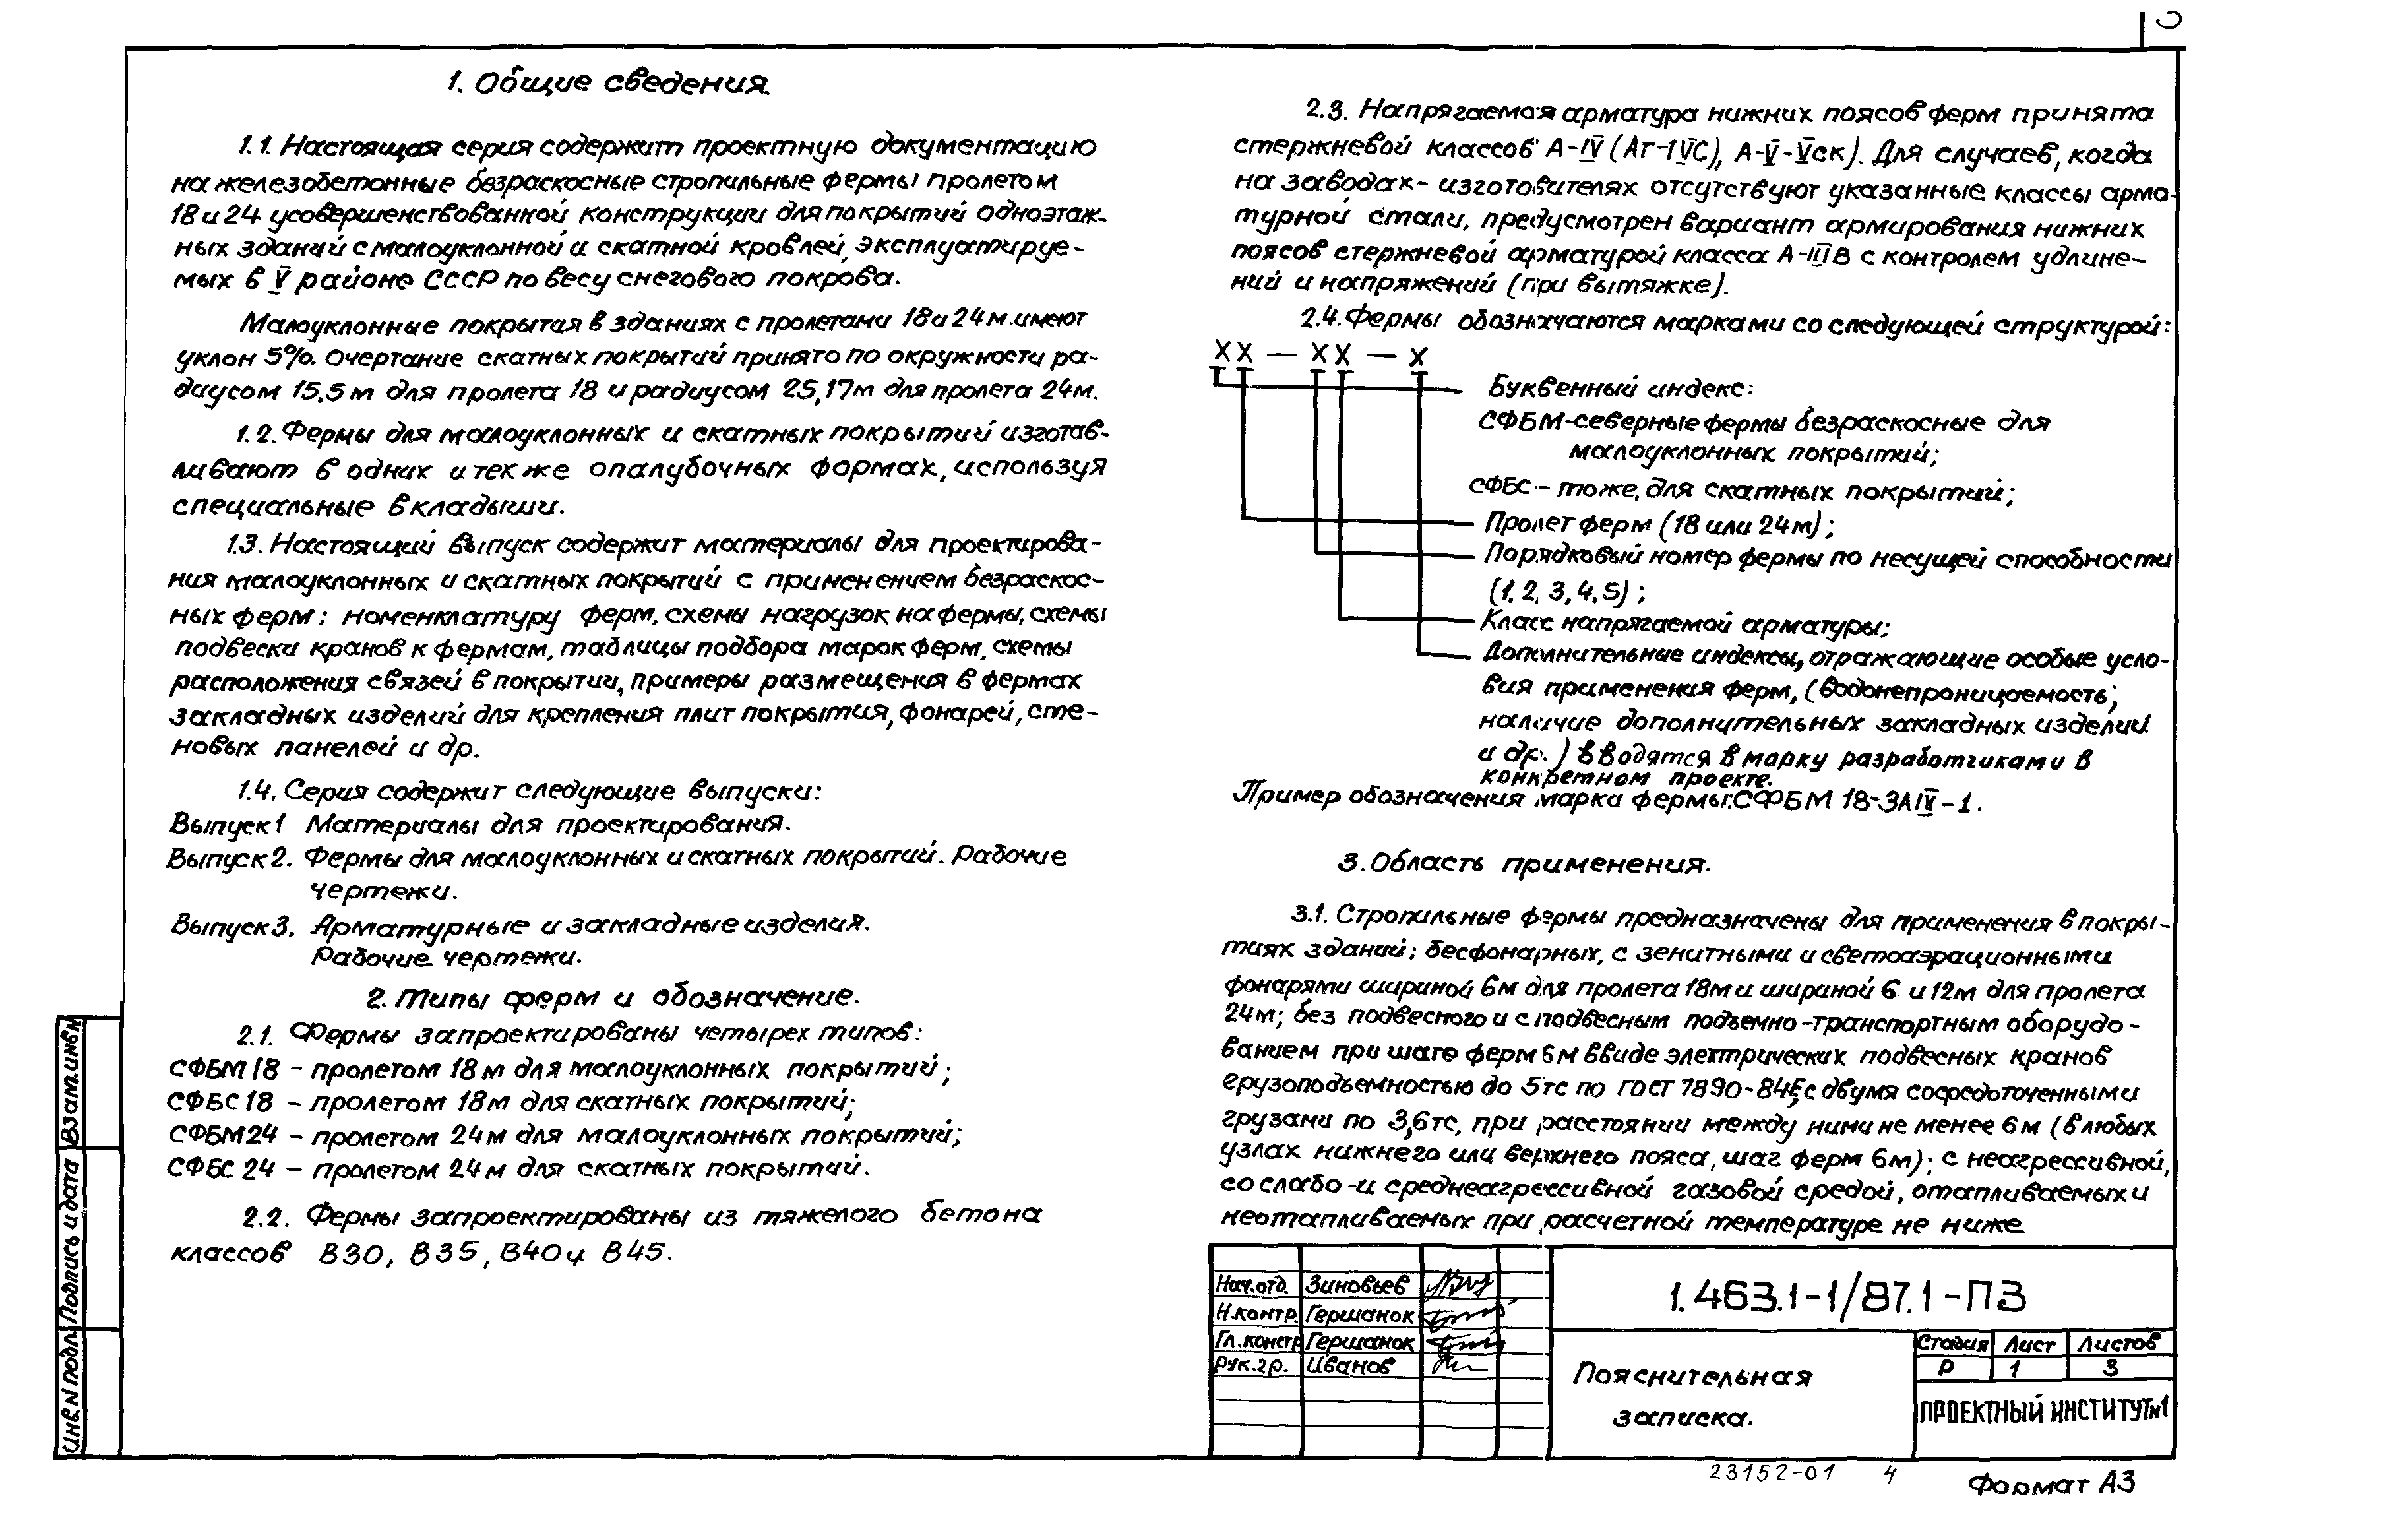 1. Общие сведения.
1.1. Настоящая серия содержит проектную документацию
на железобетонные безраскосные стропильные фермы пролетом
18 и 24 усовершенствованной конструкции для покрытий одноэтаж-
ных зданий с малоуклонной и скатной кровлей, эксплуатируе-
мых в V районе СССР по весу снегового покрова.
Малоуклонные покрытия в зданиях с пролетами 18 и 24 м имеют
уклон 5%. Очертание скатных покрытий принято по окружности ра-
диусом 15,5 м для пролета 18 и радиусом 25,17м для пролета 24м.
1.2. Фермы для малоуклонных и скатных покрытий изготав-
ливают в одних и тех же опалубочных формах, используя
специальные вкладыши.
1.3. Настоящий выпуск содержит материалы для проектирова-
ния малоуклонных и скатных покрытий с применением безраскос-
ных ферм: номенклатуру ферм, схемы нагрузок на фермы, схемы
подвески кранов к фермам, таблицы подбора марок ферм, схемы
расположения связей в покрытии, примеры размещения в фермах
закладных изделий для крепления плит покрытия, фонарей, сте-
новых панелей и др.
1.4. Серия содержит следующие выпуски:
Выпуск 1 Материалы для проектирования.
Выпуск 2. Фермы для малоуклонных и скатных покрытий. Рабочие
чертежи.
Выпуск 3. Арматурные и закладные изделия.
Рабочие чертежи.
2. Типы ферм и обозначение.
2.1. Фермы запроектированы четырех типов:
СФБМ 18 - пролетом 18 м для малоуклонных покрытий;
СФБС 18 - пролетом 18м для скатных покрытий;
СФБМ 24 - пролетом 24 м для малоуклонных покрытий;
СФБС 24 - пролетом 24 м для скатных покрытий.
2.2. Фермы запроектированы из тяжелого бетона
классов В30, В35, В40 и В45.
2.3. Напрягаемая арматура нижних поясов ферм принята
стержневой классов А-IV (Ат-IVС), А-V-Vск). Для случаев, когда
на заводах-изготовителях отсутствуют указанные классы арма-
турной стали, предусмотрен вариант армирования нижних
поясов стержневой арматурой класса А-IIIв с контролем удлине-
ний и напряжений (при вытяжке).
2.4. Фермы обозначаются марками со следующей структурой:
ХХ — ХХ — Х
Буквенный индекс:
СФБМ-северные фермы безраскосные для
малоуклонных покрытий;
СФБС - тоже, для скатных покрытий;
Пролет ферм (18 или 24 м);
Порядковый номер фермы по несущей способности
(1, 2, 3, 4, 5);
Класс напрягаемой арматуры;
Дополнительные индексы, отражающие особые усло-
вия применения ферм, (водонепроницаемость,
наличие дополнительных закладных изделий
и др.) вводятся в марку разработчиками в
конкретном проекте.
Пример обозначения марки фермы: СФБМ 18-3АIV-1.
3. Область применения.
3.1. Стропильные фермы предназначены для применения в покры-
тиях зданий: бесфонарных, с зенитными и светоаэрационными
фонарями шириной 6м для пролета 18м и шириной 6 и 12м для пролета
24м; без подвесного и с подвесным подъемно-транспортным оборудо-
ванием при шаге ферм 6 м ввиде электрических подвесных кранов
грузоподъемностью до 5тс по ГОСТ 7890-84Е; с двумя сосредоточенными
грузами по 3,6тс, при расстоянии между ними не менее 6 м (в любых
узлах нижнего или верхнего пояса, шаг ферм 6м); с неагрессивной,
со слабо-и среднеагрессивной газовой средой, отапливаемых и
неотапливаемых при расчетной температуре не ниже
Взам.инв.N
Подпись и дата
Инв.N подл.
Нач.отд. Зиновьев
Н.контр. Гершанок
Гл.констр Гершанок
Рук.гр. Иванов
1.463.1-1/87.1-ПЗ
Пояснительная
записка.
Стадия Лист Листов
Р 1 3
ПРОЕКТНЫЙ ИНСТИТУТ №1
23152-01 4
Формат А3